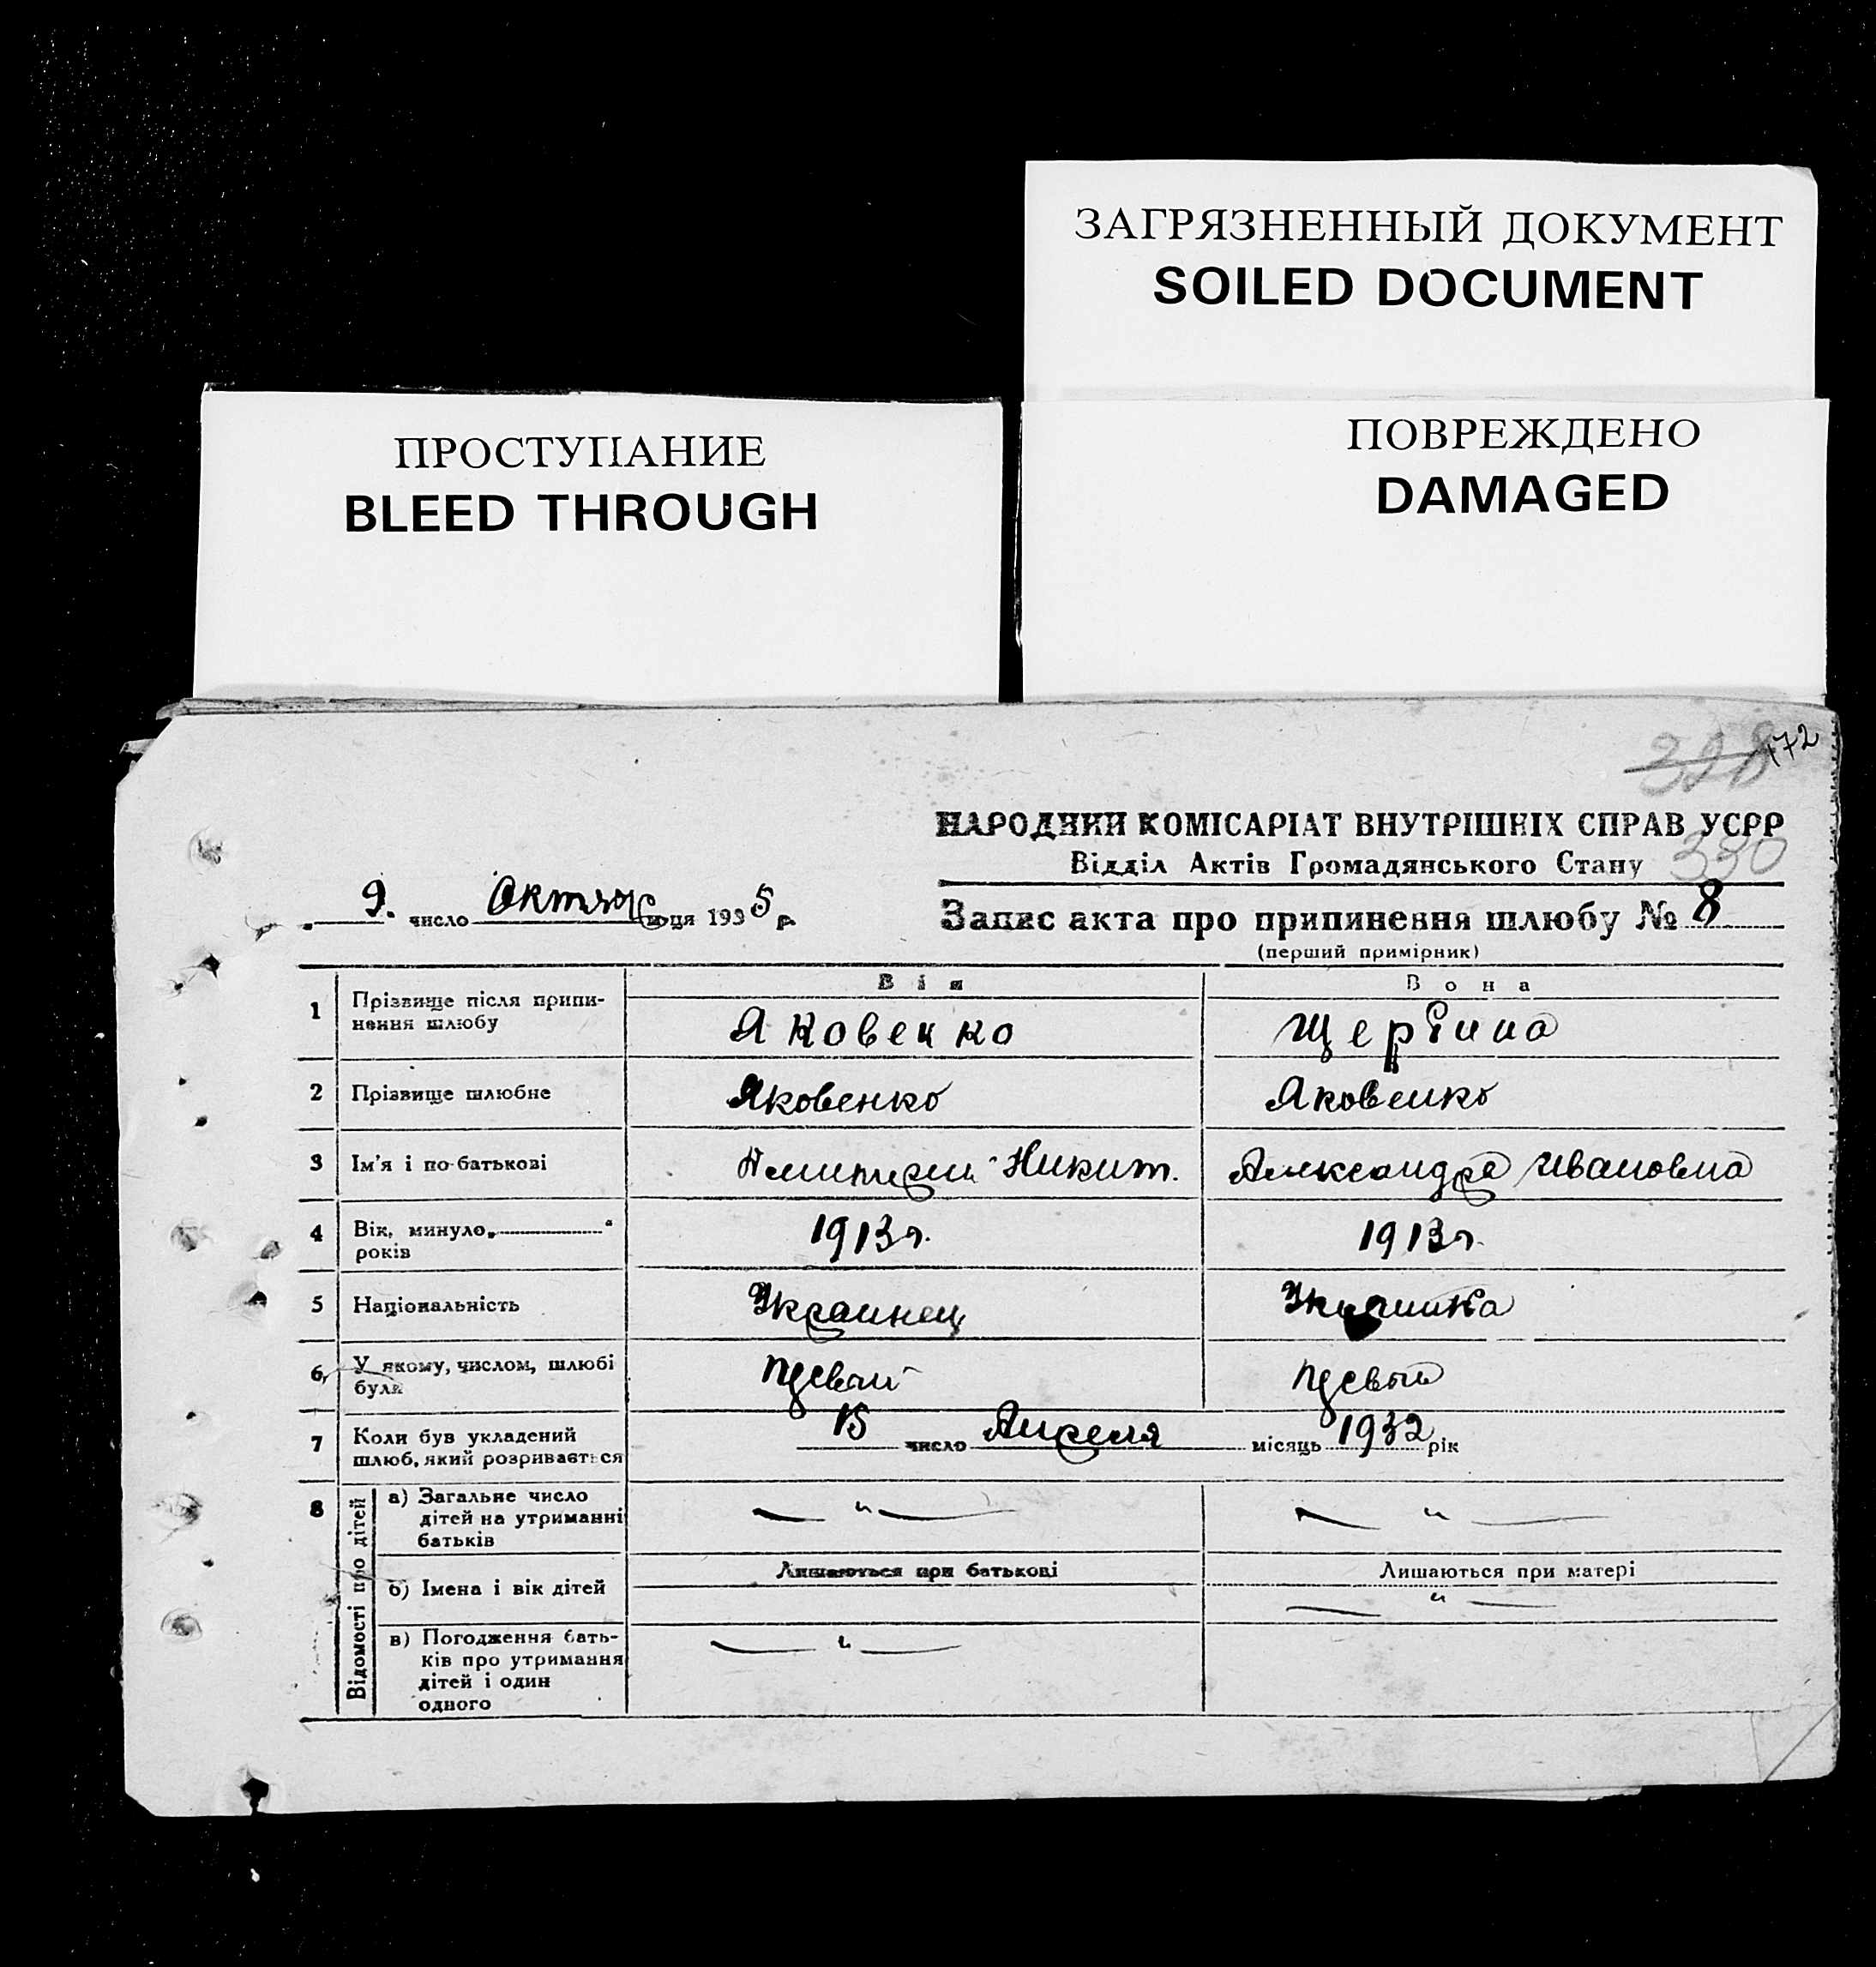 ЗАГРЯЗНЕННЫЙ ДОКУМЕНТ
SOILED DOCUMENT
ПРОСТУПАНИЕ
BLEED THROUGH
ПОВРЕЖДЕНО
DAMAGED
172
НАРОДНИЙ КОМІСАРІАТ ВНУТРІШНІХ СПРАВ УСРР
Відділ Актів Громадянського Стану 330
9. число Октябр місяця 1935 р.
Запис акта про припинення шлюбу № 8
(перший примірник)
Він Вона
1 Прізвище після припинення шлюбу Яковенко Щербина
2 Прізвище шлюбне Яковенко Яковенко
3 Ім'я і по-батькові Никит. Александра Ивановна
4 Вік, минуло років 1913 г. 1913 г.
5 Національність Украинец Украинка
6 У якому, числом, шлюбі були первый первый
7 Коли був укладений шлюб, який розривається 15 число Апреля місяць 1932 рік
8 Відомості про дітей
а) Загальне число дітей на утриманні батьків — " — — " —
Лишаються при батькові Лишаються при матері
б) Імена і вік дітей — " —
в) Погодження батьків про утримання дітей і один одного — " —